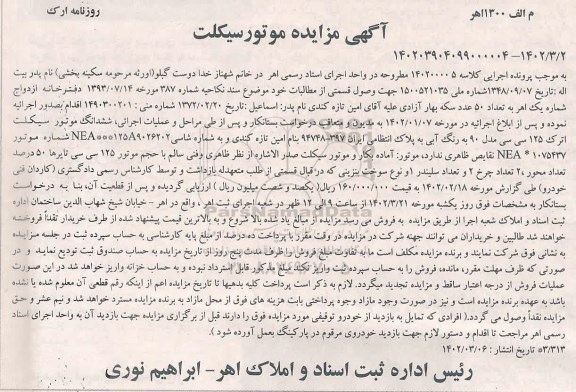 م الف ۱۳۰۰اهر
روزنامه ارک
آگهی مزایده موتورسیکلت
۱۴۰۲/۳/۲ – ۱۴۰۲۰۳۹۰۴۰۹۹۰۰۰۰۰۴
به موجب پرونده اجرایی کلاسه ۱۴۰۲۰۰۰۰۵ مطروحه در واحد اجرای اسناد رسمی اهر در خانم شهناز خدا دوست گیلو(اورثه مرحومه سکینه بخشی) نام پدر بیت
اله : تاریخ ۱۳۴۸/۰۹/۰۷شماره ملی ۱۵۰۰۵۲۱۰۳۵ جهت وصول قسمتی از مطالبات خود موضوع سند نکاحیه شماره ۳۸۷ مورخه ۱۳۹۳/۰۷/۱۴ دفترخانه ازدواج
شماره یک اهر به تعداد ۵۰ عدد سکه بهار آزادی علیه آقای امین تازه کندی نام پدر: اسماعیل :تاریخ ۱۳۷۲/۰۲/۲۰ شماره منی : ۱۴۹۰۳۰۰۲۰۱ اقدام بصدور اجرائیه
نموده و پس از ابلاغ اجرائیه در مورخه ۱۴۰۲/۰۱/۰۷ به مدیون و متعاقب درخواست بستانکار و پس از طی مراحل و عملیات اجرائی، ششدانگ موتور سیکلت
اترک ۱۲۵ سی سی مدل ۹۰ به رنگ آبی به پلاک انتظامی ایران ۹۴۷۴۸-۳۹۷ بنام امین تازه کندی و به شماره شاسی NEA***۱۲۵A۹۰۲۶۲۰۲ شماره موتور
NEA * ۱۰۷۵۴۳۷ نقایص ظاهری ندارد، موتور: آماده بکار و موتور سیکلت صدر الاشاره از نظر ظاهری وفنی سالم با حجم موتور ۱۲۵ سی سی تایرها ۵۰ درصد
تعداد محور ،۲ تعداد چرخ ۲ و تعداد سلیندر ۱و نوع سوخت بنزینی که در قبال قسمتی از طلب متعهدله بازداشت و توسط کارشناس رسمی دادگستری (کاردان فنی
خودرو) طی گزارش مورخه ۱۴۰۲/۰۲/۱۸ به قیمت ۱۶۰/۰۰۰/۰۰۰ ریال( یکصد و شصت میلیون ریال ) ارزیابی گردیده و پس از قطعیت آن، بنا به درخواست
بستانکار به مشخصات فوق روز یکشنبه مورخه ۱۴۰۲/۳/۲۱ از ساعت ۹ الی ۱۲ ظهر در شعبه اجرای ثبت اهر واقع در اهر – خیابان شیخ شهاب الدین ساختمان اداره
ثبت اسناد و املاک شعبه اجرا از طریق مزایده به فروش می رسد مزایده از مبلغ یاد شده بالا شروع و به بالاترین قیمت پیشنهاد شده از طرف خریدار نقداً فروخته
خواهند شد طالبین و خریداران می توانند جهت شرکت در مزایده در وقت مقرر با پرداخت ده درصد از مبلغ پایه کارشناسی به حساب سپرده ثبت در جلسه مزایده
به نشانی فوق شرکت نمایند و برنده مزایده مکلف است ما به تفاوت مبلغ فروش را ظرف مدت پنج روز از تاریخ مزایده به حساب صندوق ثبت تودیع نماید و در
صورتی که ظرف مهلت مقرر، مانده فروش را به حساب سپرده ثبت واریز نکند مبلغ مذکور قابل استرداد نبوده و به حساب خزانه واریز خواهد شد در این صورت
عملیات فروش از درجه اعتبار ساقط و مزایده تجدید میگردد. لازم به ذکر است پرداخت کلیه بدهیها تا تاریخ مزایده اعم از اینکه رقم قطعی آن معلوم شده یا نشده
باشد به عهده برنده مزایده است و نیز در صورت وجود مازاد وجوه پرداختی بابت هزینه های فوق از محل مازاد به برنده مزایده مسترد خواهد شد و نیم عشر و حق
مزایده نقداً وصول می گردد.( افرادی که تمایل به بازدید از خودرو توقیفی مورد مزایده فوق را دارند قبل از برگزاری مزایده جهت بازدید آن به واحد اجرای اسناد
رسمی اهر مراجعت تا اقدام و دستور لازم جهت بازدید خودروی مرقوم در پارکینگ بعمل آورده شود ).
۳/۳۱۳* تاریخ انتشار : ۱۴۰۲/۰۳/۰۶
رئیس اداره ثبت اسناد و املاک اهر – ابراهیم نوری